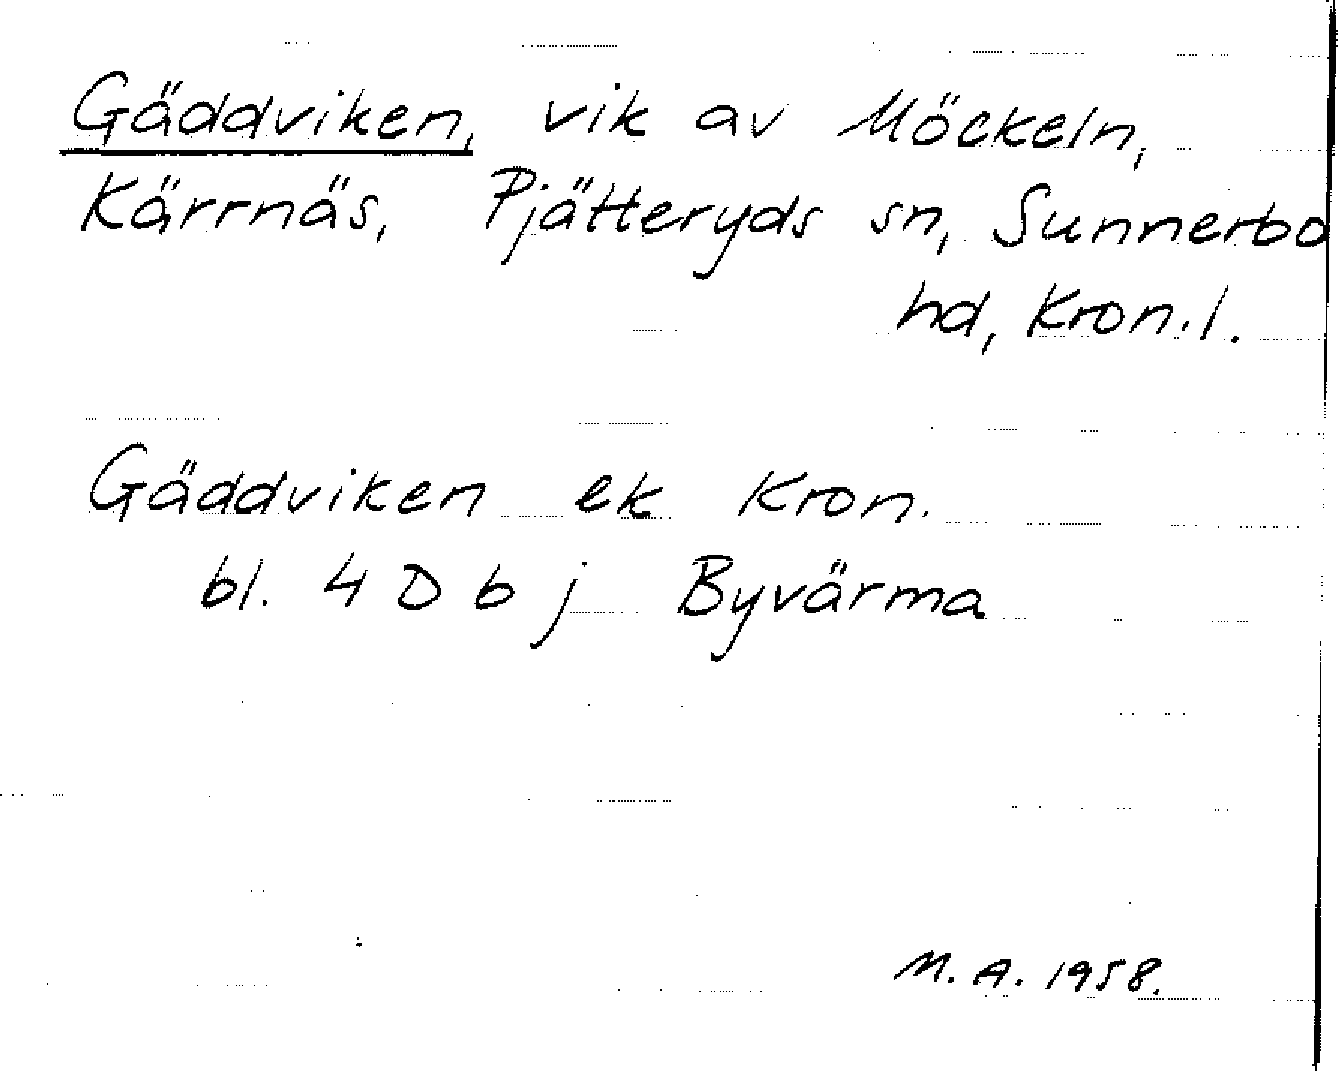 Gäddviken, vik av Möckeln,
Kärrnäs, Pjätteryds sn, Sunnerbo
hd, Kron.l.
Gäddviken ek Kron.
bl. 4 D b j Byvärma
M. A. 1958.